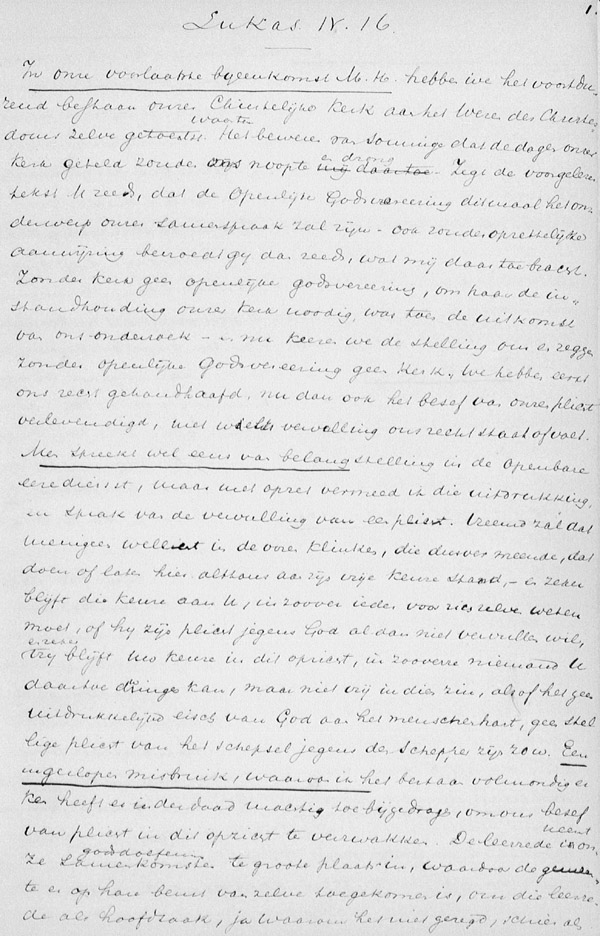 1.
Lukas IV. 16.
In onze voorlaatste bijeenkomst M. H. hebben we het voortdu-
rend bestaan onzer Christelijke Kerk aan het Wezen des Christen
doms zelve getoetst. Het beweren van sommige dat de dagen onzer
Kerk geteld zouden noopte en drong. Zegt de voorgelezen
tekst U reeds, dat de Openlijke Godsvereering ditmaal het on-
derwerp onzer Samenspraak zal zijn - ook zonder opzettelijke
aanwijzing bevroedt gij dan reeds, wat mij daar toe bracht.
Zonder kerk geen openlijke godsvereering, om haar de in-
standhouding onzer Kerk noodig, was toen de uitkomst
van ons onderzoek - en nu keeren we de stelling om en zeggen
zonder openlijke Godsvereering geen Kerk. We hebben eerst
ons recht gehandhaafd, nu dan ook het besef van onzen plicht
verlevendigd, met welks vervulling ons recht staat of valt.
Men spreekt wel eens van belangstelling in de Openbare
eeredienst, maar met opzet vermeed ik die uitdrukking,
en sprak van de vervulling van een plicht. Vreemd zal dat
menigeen wellicht in de ooren klinken, die dusver meende, dat
doen of laten hier althans aan zijn vrije keuze stond, - en zeker
blijft die keuze aan U, in zoover ieder voor zich zelve weten
moet, of hij zijn plicht jegens God al dan niet vervullen wil,
vrij blijft Uw keuze in dit opzicht, in zooverre niemand U
daartoe dringen kan, maar niet vrij in dien zin, alsof het geen
uitdrukkelijke eisch van God aan het menschenhart, geen stel
lige plicht van het schepsel jegens den Schepper zijn zou. Een
ingeslopen misbruik, waarvan ik het bestaan volmondig er
ken heeft er inderdaad machtig toe bijgedragen, om ons besef
van plicht in dit opzicht te verzwakken. De leerrede neemt in on-
ze godsdienstige Samenkomsten te groote plaats in, waardoor de gemeen-
te er op haar beurt van zelve toe gekomen is, om die leerre-
de als hoofdzaak, ja waarom het niet gezegd, schier als